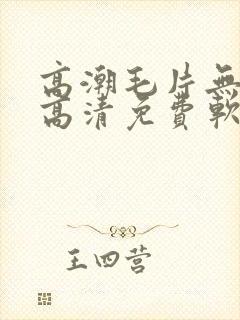 高潮毛片無
高清免費軟
王四营